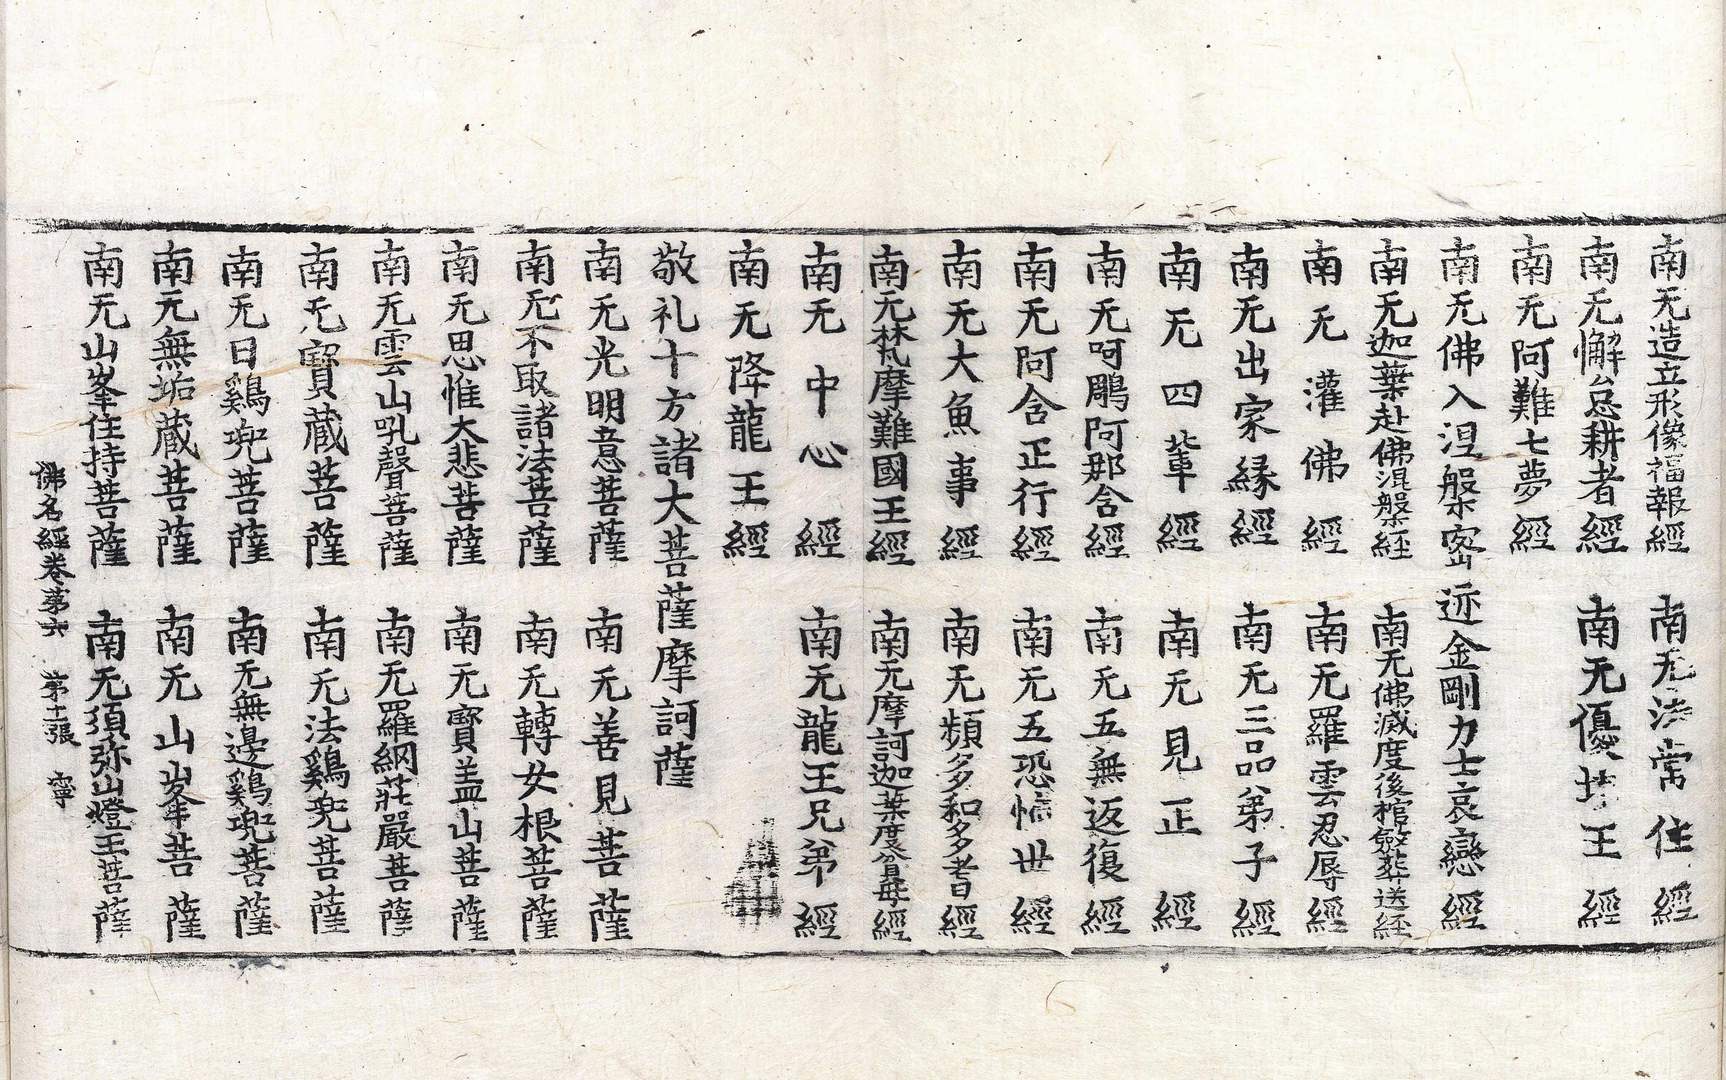 南无造立形像福報經　南无法常住經
南无懈怠耕者經　南无優填王經
南无阿難七夢經
南无佛入涅槃密迹金剛力士哀戀經
南无迦葉赴佛涅槃経　南无佛滅度後棺斂葬送経
南无灌佛經　南无羅雲忍辱經
南无出家縁經　南无三品弟子經
南无四輩經　南无見正經
南无呵鵰阿那含經　南无五無返復經
南无阿含正行經　南无五恐怖世經
南无大魚事經　南无頻多和多耆經
南无梵摩難國王經　南无摩訶迦葉度貧母經
南无中心經　南无龍王兄弟經
南无降龍王經
敬礼十方諸大菩薩摩訶薩
南无光明意菩薩　南无善見菩薩
南无不取諸法菩薩　南无轉女根菩薩
南无思惟大悲菩薩　南无寳盖山菩薩
南无雲山吼聲菩薩　南无羅網莊嚴菩薩
南无寳蔵菩薩　南无法鷄兜菩薩
南无日鷄兜菩薩　南无無邊鷄兜菩薩
南无無垢蔵菩薩　南无山峯菩薩
南无山峯住持菩薩　南无須弥山燈王菩薩
佛名經卷第六　第十二張　寧